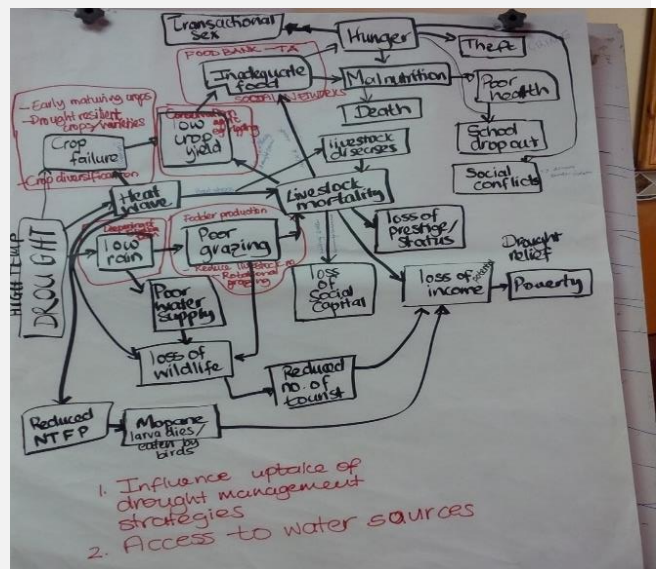 Transactional
Sex
Hunger
Theft
FOOD BANK - TA
Inadequate
food
SOCIAL NETWORKS
Malnutrition
Poor
health
Death
School
dropout
Social
conflicts
- Early maturing crops
- Drought resilient
crops/varieties
Crop
failure
- Crop diversification
Conservation
low
crop
yield
livestock
diseases
Heat
wave
Livestock
mortality
HIGH TEMP
DROUGHT
low
rain
Fodder production
Poor
grazing
- Reduce livestock no
- Rotational
grazing
loss of
prestige/
status
loss
of
Social
Capital
loss of
income
Drought
relief
Poverty
Poor
water
supply
loss of
wildlife
Reduced
no. of
tourist
Reduced
NTFP
Mopane
larva dies/
eaten by
birds
1. Influence uptake of
drought management
strategies
2. Access to water sources